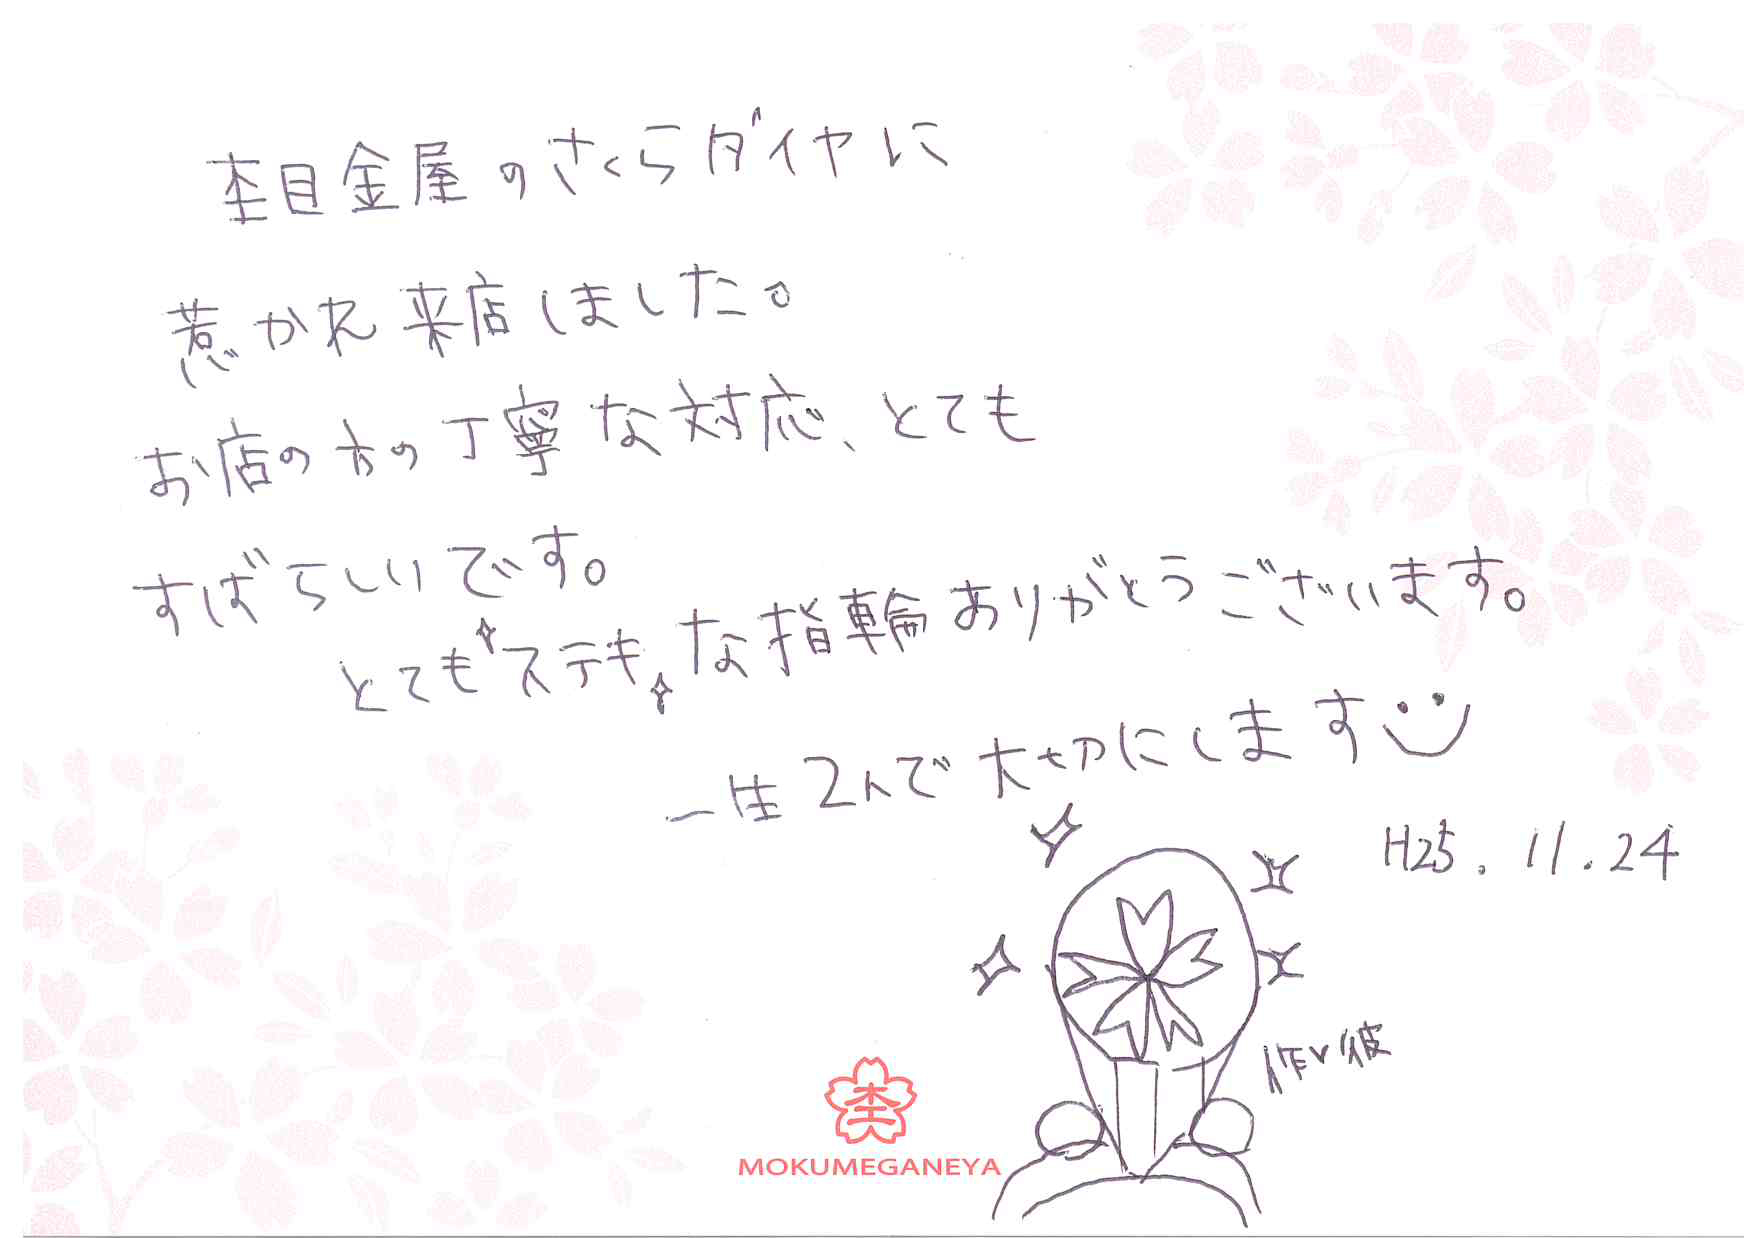 杢目金屋のさくらダイヤに
惹かれ来店しました。
お店の方の丁寧な対応、とても
すばらしいです。
とてもステキな指輪ありがとうございます。
一生2人で大切にします
H25.11.24
作▽彼
杢
MOKUMEGANEYA